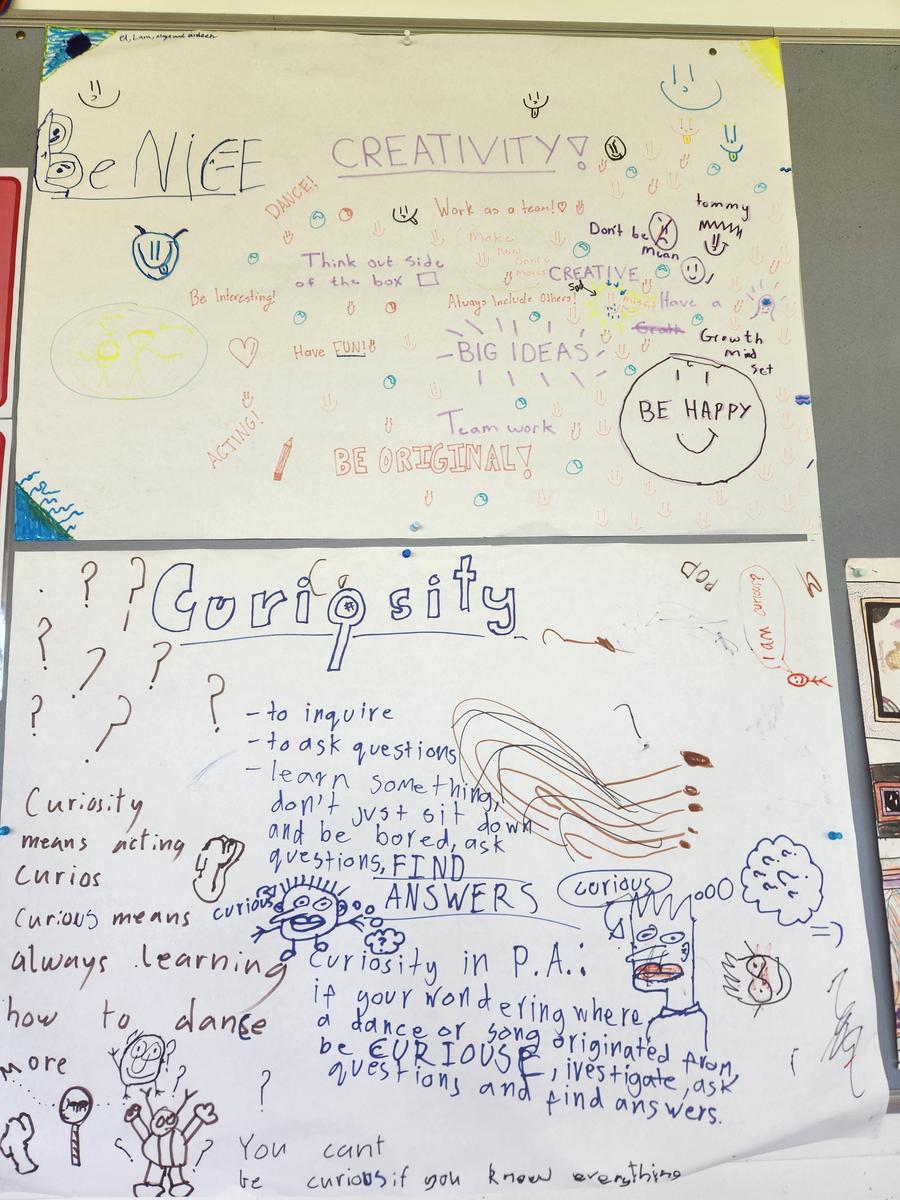 Be NiCE
CREATIVITY!
DANCE!
Work as a team!
tommy
Don't be
mean
Make
Dance
moves
Think out side
of the box
CREATIVE
Sad
Be Interesting!
Always Include Others!
Have a
Groth
Growth
mind
set
Have FUN!
BIG IDEAS
BE HAPPY
ACTING!
Team work
BE ORIGINAL!
Curiosity
POP
I am curious?
- to inquire
- to ask questions
- learn something,
don't just sit down
and be bored, ask
questions, FIND
ANSWERS
Curiosity
means acting
Curios
Curious means
always learning
how to dance
more
curious
curious
Curiosity in P.A.:
if your wondering where
a dance or song originated from,
be CURIOUSE, ivestigate, ask
questions and find answers.
You cant
be curious if you know everything